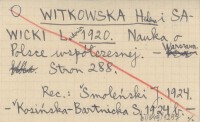 Q WITKOWSKA Helena i SA-
WICKI L. 1920. Nauka o
Polsce współczesnej. Warszawa
Stron 288.
Rec.: "Smoleński J. 1924.
-"Kosińska-Bartnicka S. 1924